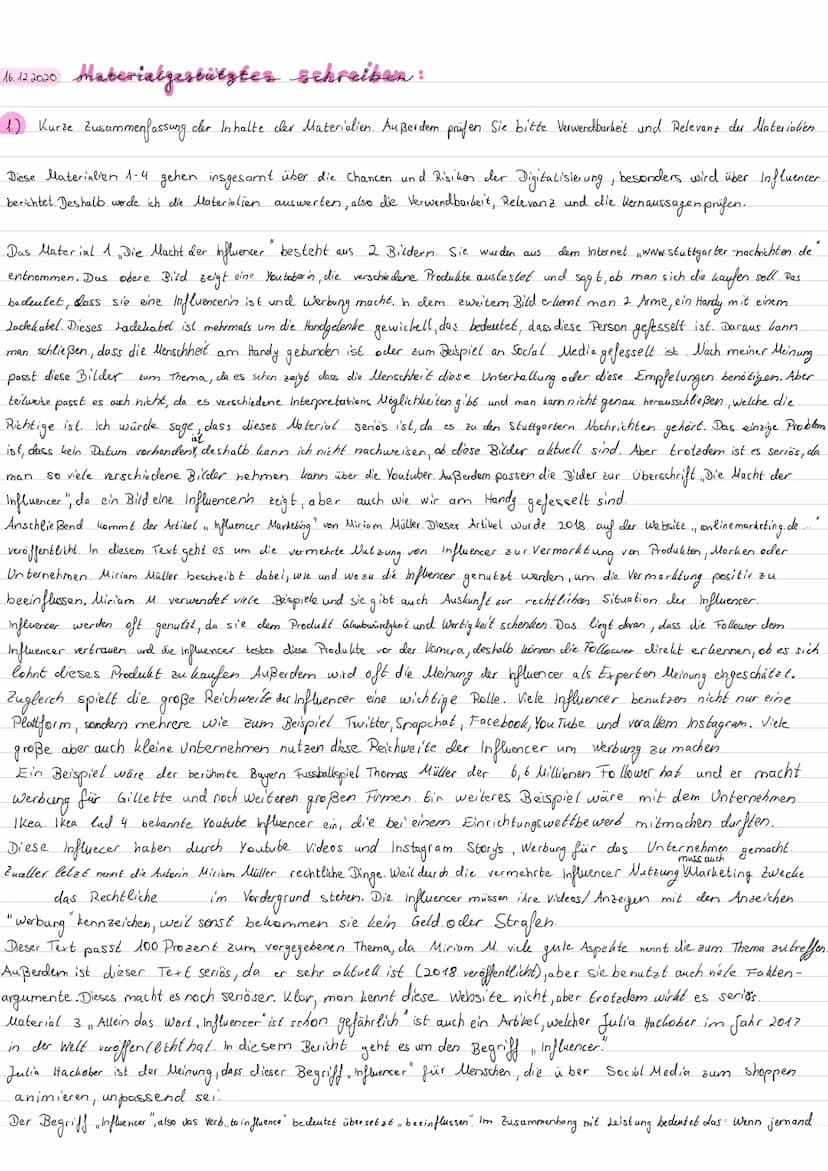 16.12.2020 Materialgestütztes schreiben:
1.) Kurze Zusammenfassung der Inhalte der Materialien. Außerdem prüfen Sie bitte Verwendbarkeit und Relevanz der Materialien
Diese Materialien 1-4 gehen insgesamt über die Chancen und Risiken der Digitalisierung, besonders wird über Influencer
berichtet. Deshalb werde ich die Materialien auswerten, also die Verwendbarkeit, Relevanz und die Kernaussagen prüfen.
Das Material 1 „Die Macht der Influencer" besteht aus 2 Bildern. Sie wurden aus dem Internet „www.stuttgarter-nachrichten.de"
entnommen. Das obere Bild zeigt eine Youtuberin, die verschiedene Produkte austestet und sagt, ob man sich die kaufen soll. Das
bedeutet, dass sie eine Influencerin ist und Werbung macht. In dem zweitem Bild erkennt man 2 Arme, ein Handy mit einem
Ladekabel. Dieses Ladekabel ist mehrmals um die Handgelenke gewickelt, das bedeutet, dass diese Person gefesselt ist. Daraus kann
man schließen, dass die Menschheit am Handy gebunden ist oder zum Beispiel an Social Media gefesselt ist. Nach meiner Meinung
passt diese Bilder zum Thema, da es schon zeigt dass die Menschheit diese Unterhaltung oder diese Empfelungen benötigen. Aber
teilweise passt es auch nicht, da es verschiedene Interpretations Möglichkeiten gibt und man kann nicht genau herausschließen, welche die
Richtige ist. Ich würde sage, dass dieses Material seriös ist, da es zu den Stuttgartern Nachrichten gehört. Das einzige Problem
ist, dass kein Datum vorhanden ist, deshalb kann ich nicht nachweisen, ob diese Bilder aktuell sind. Aber trotzdem ist es seriös, da
man so viele verschiedene Bilder nehmen kann über die Youtuber. Außerdem passen die Bilder zur Überschrift „Die Macht der
Influencer", da ein Bild eine Influencerin zeigt, aber auch wie wir am Handy gefesselt sind.
Anschließend kommt der Artikel „Influencer Marketing" von Miriam Müller. Dieser Artikel wurde 2018 auf der Website „onlinemarketing.de..."
veröffentlicht. In diesem Text geht es um die vermehrte Nutzung von Influencer zur Vermarktung von Produkten, Marken oder
Unternehmen. Miriam Müller beschreibt dabei, wie und wozu die Influencer genutzt werden, um die Vermarktung positiv zu
beeinflussen. Miriam M verwendet viele Beispiele und sie gibt auch Auskunft zur rechtlichen Situation der Influencer.
Influencer werden oft genutzt, da sie dem Produkt Glaubwürdigkeit und Wertigkeit schenken. Das liegt daran, dass die Follower dem
Influencer vertrauen und die Influencer testen diese Produkte vor der Kamera, deshalb können die Follower direkt erkennen, ob es sich
lohnt dieses Produkt zu kaufen. Außerdem wird oft die Meinung der Influencer als Experten Meinung eingeschätzt.
Zugleich spielt die große Reichweite der Influencer eine wichtige Rolle. Viele Influencer benutzen nicht nur eine
Plattform, sondern mehrere wie zum Beispiel Twitter, Snapchat, Facebook, YouTube und vorallem Instagram. Viele
große aber auch kleine Unternehmen nutzen diese Reichweite der Influencer um Werbung zu machen
Ein Beispiel wäre der berühmte Bayern Fussballspiel Thomas Müller der 6,6 Millionen Follower hat und er macht
Werbung für Gillette und noch weiteren großen Firmen. Ein weiteres Beispiel wäre mit dem Unternehmen
Ikea. Ikea lud 4 bekannte Youtube Influencer ein, die bei einem Einrichtungswettbewerb mitmachen durften.
Diese Influecer haben durch Youtube Videos und Instagram Story's, Werbung für das Unternehmen gemacht.
Zualler letzt nennt die Autorin Miriam Müller rechtliche Dinge. Weil durch die vermehrte Influencer Nutzung Marketing Zwecke muss auch
das Rechtliche im Vordergrund stehen. Die Influencer müssen ihre Videos/Anzeigen mit den Anzeichen
"Werbung" kennzeichen, weil sonst bekommen sie kein Geld oder Strafen.
Dieser Text passt 100 Prozent zum vorgegebenen Thema, da Miriam M. viele gute Aspekte nennt die zum Thema zutreffen.
Außerdem ist dieser Text seriös, da er sehr aktuell ist (2018 veröffentlicht), aber sie benutzt auch viele Fakten-
argumente. Dieses macht es noch seriöser. Klar, man kennt diese Website nicht, aber trotzdem wirkt es seriös.
Material 3 „Allein das Wort, Influencer' ist schon gefährlich" ist auch ein Artikel, welcher Julia Hackober im Jahr 2017
in der Welt veröffentlicht hat. In diesem Bericht geht es um den Begriff „Influencer."
Julia Hackober ist der Meinung, dass dieser Begriff „Influencer" für Menschen, die über Social Media zum shoppen
animieren, unpassend sei.
Der Begriff „Influencer", also das Verb „to influence" bedeutet übersetzt „beeinflussen". Im Zusammenhang mit Leistung bedeutet das: Wenn jemand